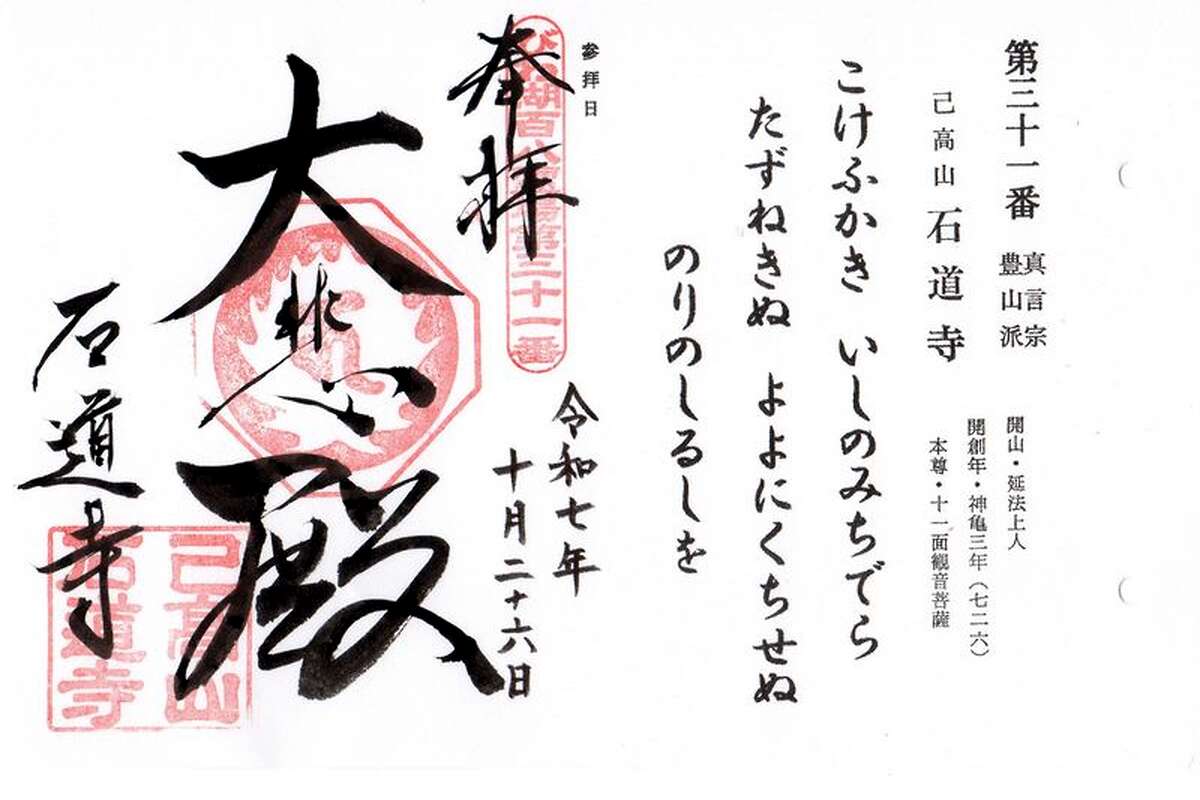 第三十一番 真言宗 豊山派
開山・延法上人
己高山 石道寺
開創年・神亀三年(七二六)
本尊・十一面観音菩薩
こけふかき いしのみちでら
たずねきぬ よよにくちせぬ
のりのしるしを
参拝日
奉拝
びわ湖百八霊場第三十一番
令和七年
十月二十六日
大悲殿
石道寺
己高山
石道寺